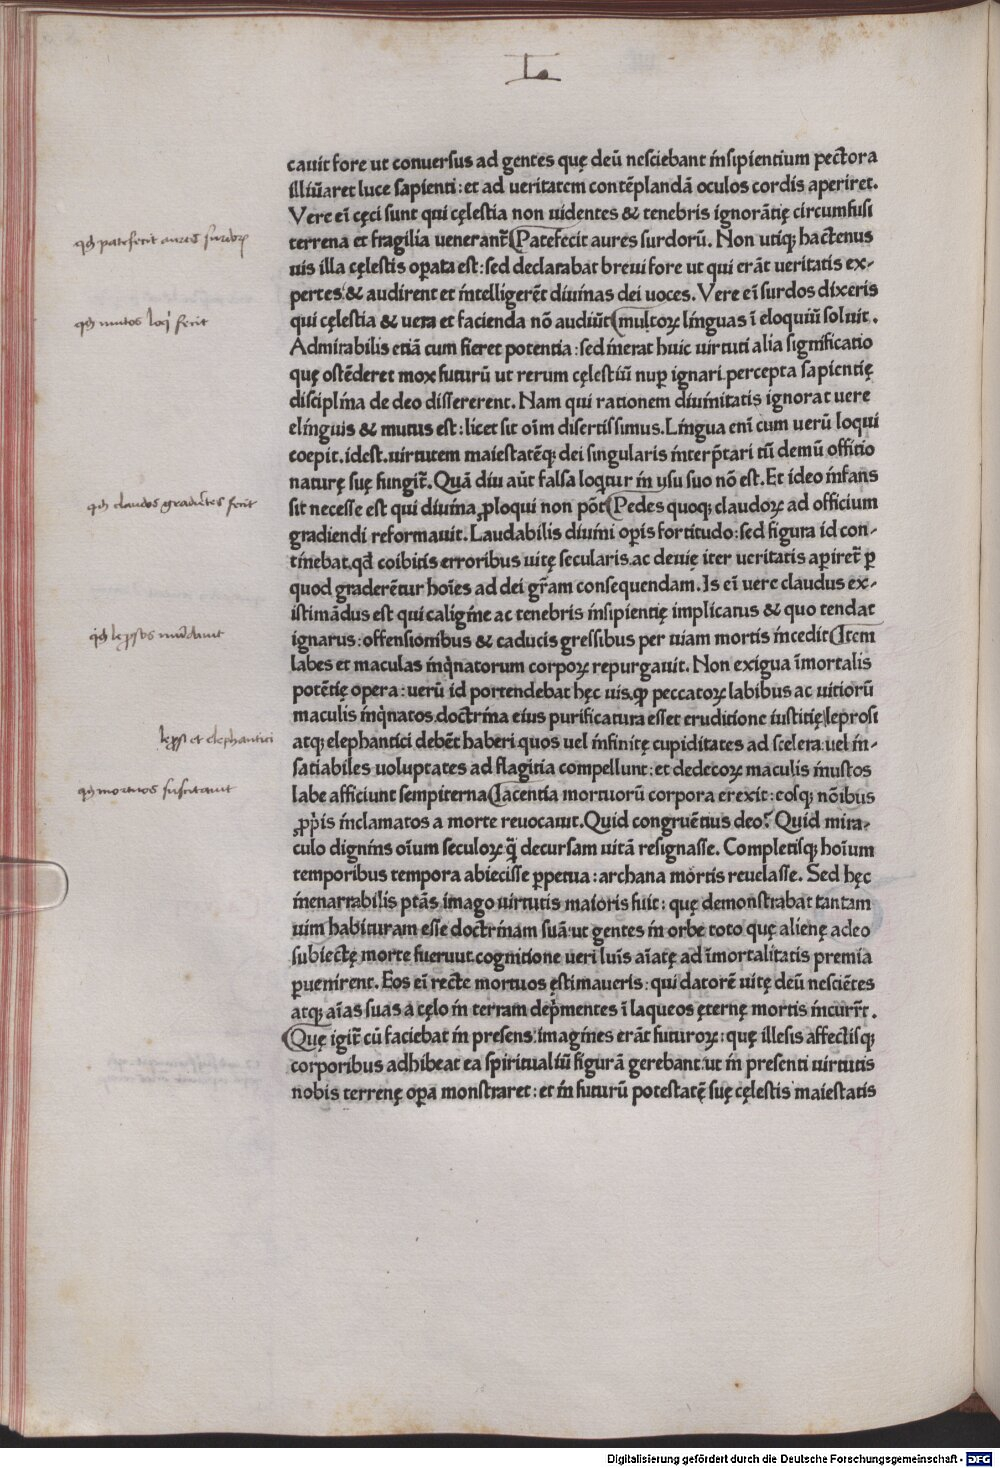 L
cauit fore ut conuersus ad gentes quę deū nesciebant insipientium pectora
illiūaret luce sapienti: et ad ueritatem contēplandā oculos cordis aperiret.
Vere eī cęci sunt qui cęlestia non uidentes & tenebris ignorātię circumfusi
terrena et fragilia uenerant̄ (Patefecit aures surdorū. Non utiqꝫ hactenus
qđ patefecit aures surdoꝝ
uis illa cęlestis oꝑata est: sed declarabat breui fore ut qui erāt ueritatis ex-
pertes & audirent et intelligerēt diuinas dei uoces. Vere eī surdos dixeris
qui cęlestia & uera et facienda nō audiūt (multoꝝ linguas ī eloquiū soluit.
qđ mutos loqi fecit
Admirabilis etiā cum fieret potentia: sed inerat huic uirtuti alia significatio
quę ostēderet mox futurū ut rerum cęlestiū nuꝑ ignari percepta sapientię
disciplina de deo dissererent. Nam qui rationem diuinitatis ignorat uere
elinguis & mutus est: licet sit oīm disertissimus. Lingua enī cum uerū loqui
coepit. idest. uirtutem maiestatēqꝫ dei singularis interp̄tari tū demū offitio
naturę suę fungit̄. Quā diu aūt falsa loqtur in usu suo nō est. Et ideo infans
sit necesse est qui diuina ꝓloqui non pōt (Pedes quoqꝫ claudoꝝ ad officium
qđ claudos gradiētes fecit
gradiendi reformauit. Laudabilis diuini oꝑis fortitudo: sed figura id con-
tinebat. qđ coibitis erroribus uitę secularis ac deuię iter ueritatis aꝑiret̄ ꝑ
quod graderētur hoīes ad dei gr̄am consequendam. Is eī uere claudus ex-
istimādus est qui caligine ac tenebris insipientię implicatus & quo tendat
ignarus: offensionibus & caducis gressibus per uiam mortis incedit (Item
qđ leprosos mūdauit
labes et maculas inqnatorum corpoꝝ repurgauit. Non exigua īmortalis
potētię opera: uerū id portendebat hęc uis. ꝙ peccatoꝝ labibus ac uitiorū
maculis inqnatos doctrina eius purificatura esset eruditione iustitię (leprosi
atqꝫ elephantici debēt haberi quos uel infinitę cupiditates ad scelera: uel in-
leprosi et elephantici
satiabiles uoluptates ad flagitia compellunt: et dedecoꝝ maculis inustos
labe afficiunt sempiterna (Iacentia mortuorū corpora erexit: eosqꝫ nōibus
qđ mortuos suscitauit
ꝓpriis inclamatos a morte reuocauit. Quid congruētius deo? Quid mira-
culo dignius oīum seculoꝝ: q̄ decursam uitā resignasse. Completisqꝫ hoīum
temporibus tempora abiecisse ꝑpetua: archana mortis reuelasse. Sed hęc
inenarrabilis ptās imago uirtutis maioris fuit: quę demonstrabat tantam
uim habituram esse doctrinam suā: ut gentes in orbe toto quę alienę a deo
subiectę morte fuerunt. cognitione ueri luīs aīatę ad īmortalitatis premia
ꝑuenirent. Eos eī recte mortuos ęstimaueris: qui datorē uitę deū nesciētes
atqꝫ aīas suas a cęlo in terram dep̄mentes ī laqueos ęternę mortis incurrr̄t.
(Quę igit̄ cū faciebat in presens. imagines erāt futuroꝝ: quę illesis affectisqꝫ
corporibus adhibeat ea spiritualiū figurā gerebant: ut in presenti uirtutis
nobis terrenę oꝑa monstraret: et in futurū potestatę suę cęlestis maiestatis
Digitalisierung gefördert durch die Deutsche Forschungsgemeinschaft - DFG